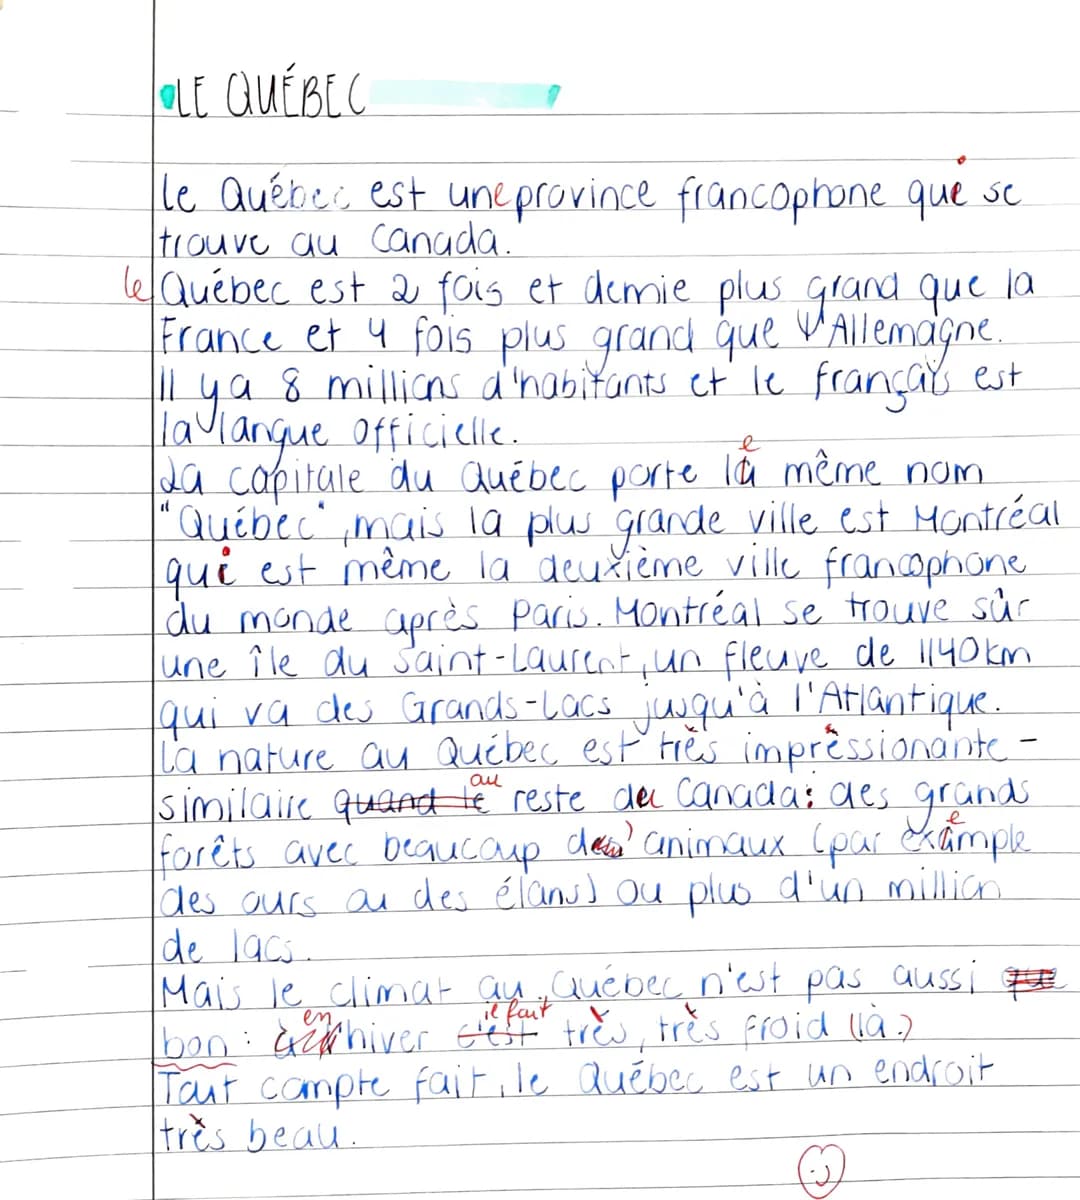 LE QUÉBEC
Le Québec est une province francophone qui se
trouve au Canada.
le Québec est 2 fois et demie plus grand que la
France et 4 fois plus grand que l'Allemagne.
Il y a 8 millions d'habitants et le français est
la langue officielle.
La capitale du Québec porte le même nom
"Québec", mais la plus grande ville est Montréal
qui est même la deuxième ville francophone
du monde après Paris. Montréal se trouve sûr
une île du Saint-Laurent, un fleuve de 1140 km
qui va des Grands-Lacs jusqu'à l'Atlantique.
La nature au Québec est très impressionante -
similaire au reste du Canada: des grands
forêts avec beaucoup d'animaux (par exemple
des ours ou des élans) ou plus d'un million
de lacs.
Mais le climat au Québec n'est pas aussi
bon: en hiver il fait très, très froid (là.)
Tout compte fait, le Québec est un endroit
très beau.